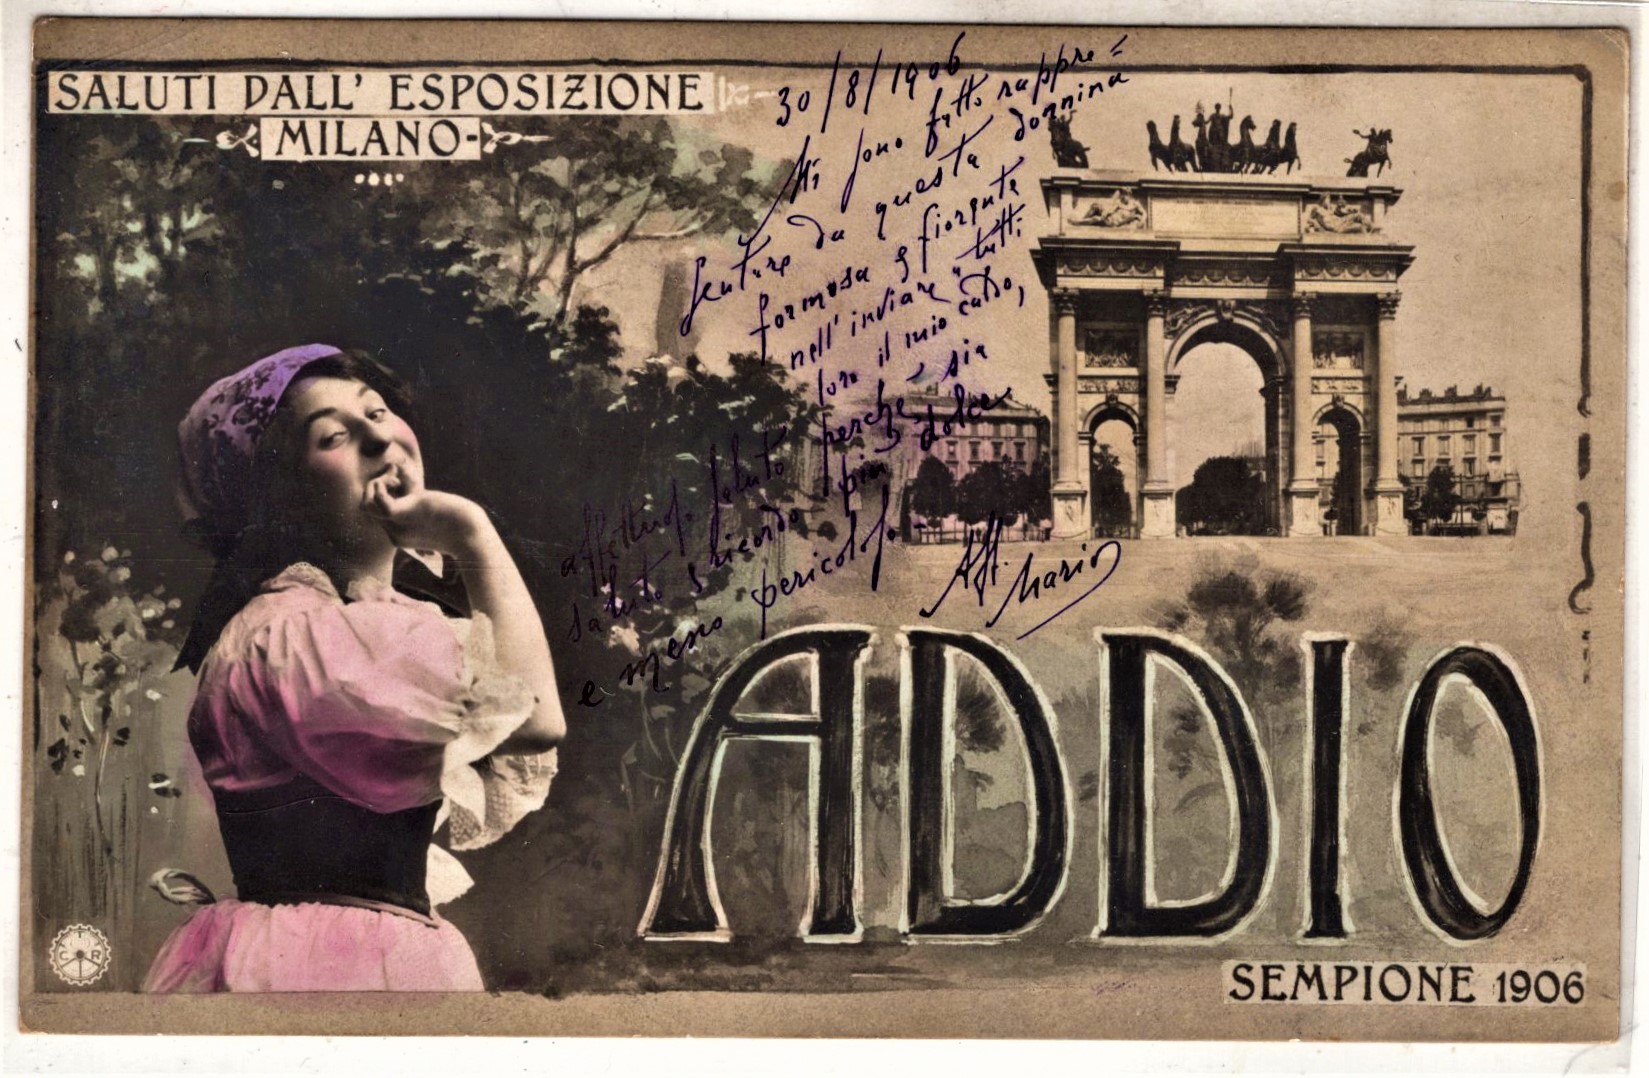 SALUTI DALL' ESPOSIZIONE
MILANO-
30/8/1906
Mi sono fatto rappre=
sentare da questa donnina
formosa e fiorente
nell'inviare a tutti
loro il mio caldo,
affettuoso saluto perché sia
saluto e ricordo più dolce
e meno pericoloso.
Aff. Mario
ADDIO
SEMPIONE 1906
T
C R